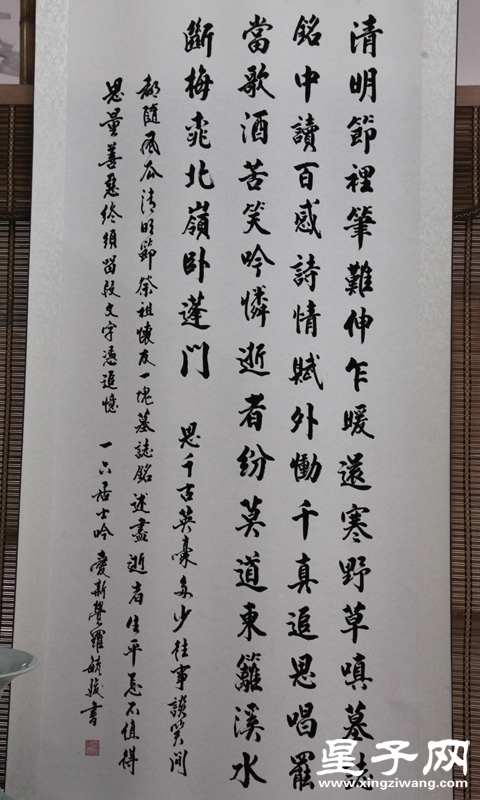 清明節裡筆難伸乍暖還寒野草嗔墓誌
銘中讀百感詩情賦外慟千真追思唱罷
當歌酒苦笑吟憐逝者紛莫道東籬溪水
斷梅飛北嶺臥蓬門
思千古英豪多少往事談笑間
都隨風 清明節祭祖懷友一塊墓誌銘述盡逝者生平怎不值得
思量善惡終須留段文字憑追憶
一六居士吟 愛新覺羅毓 書
星子网
www.xingziwang.com